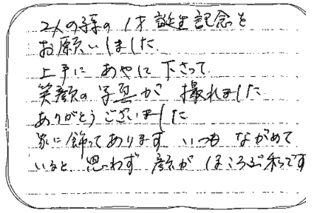 2人の孫の1才誕生記念を
お願いしました
上手にあやして下さって
笑顔の写真が撮れました
ありがとうございました
家に飾ってあります いつもながめて
いると思わず顔がほころぶ私です